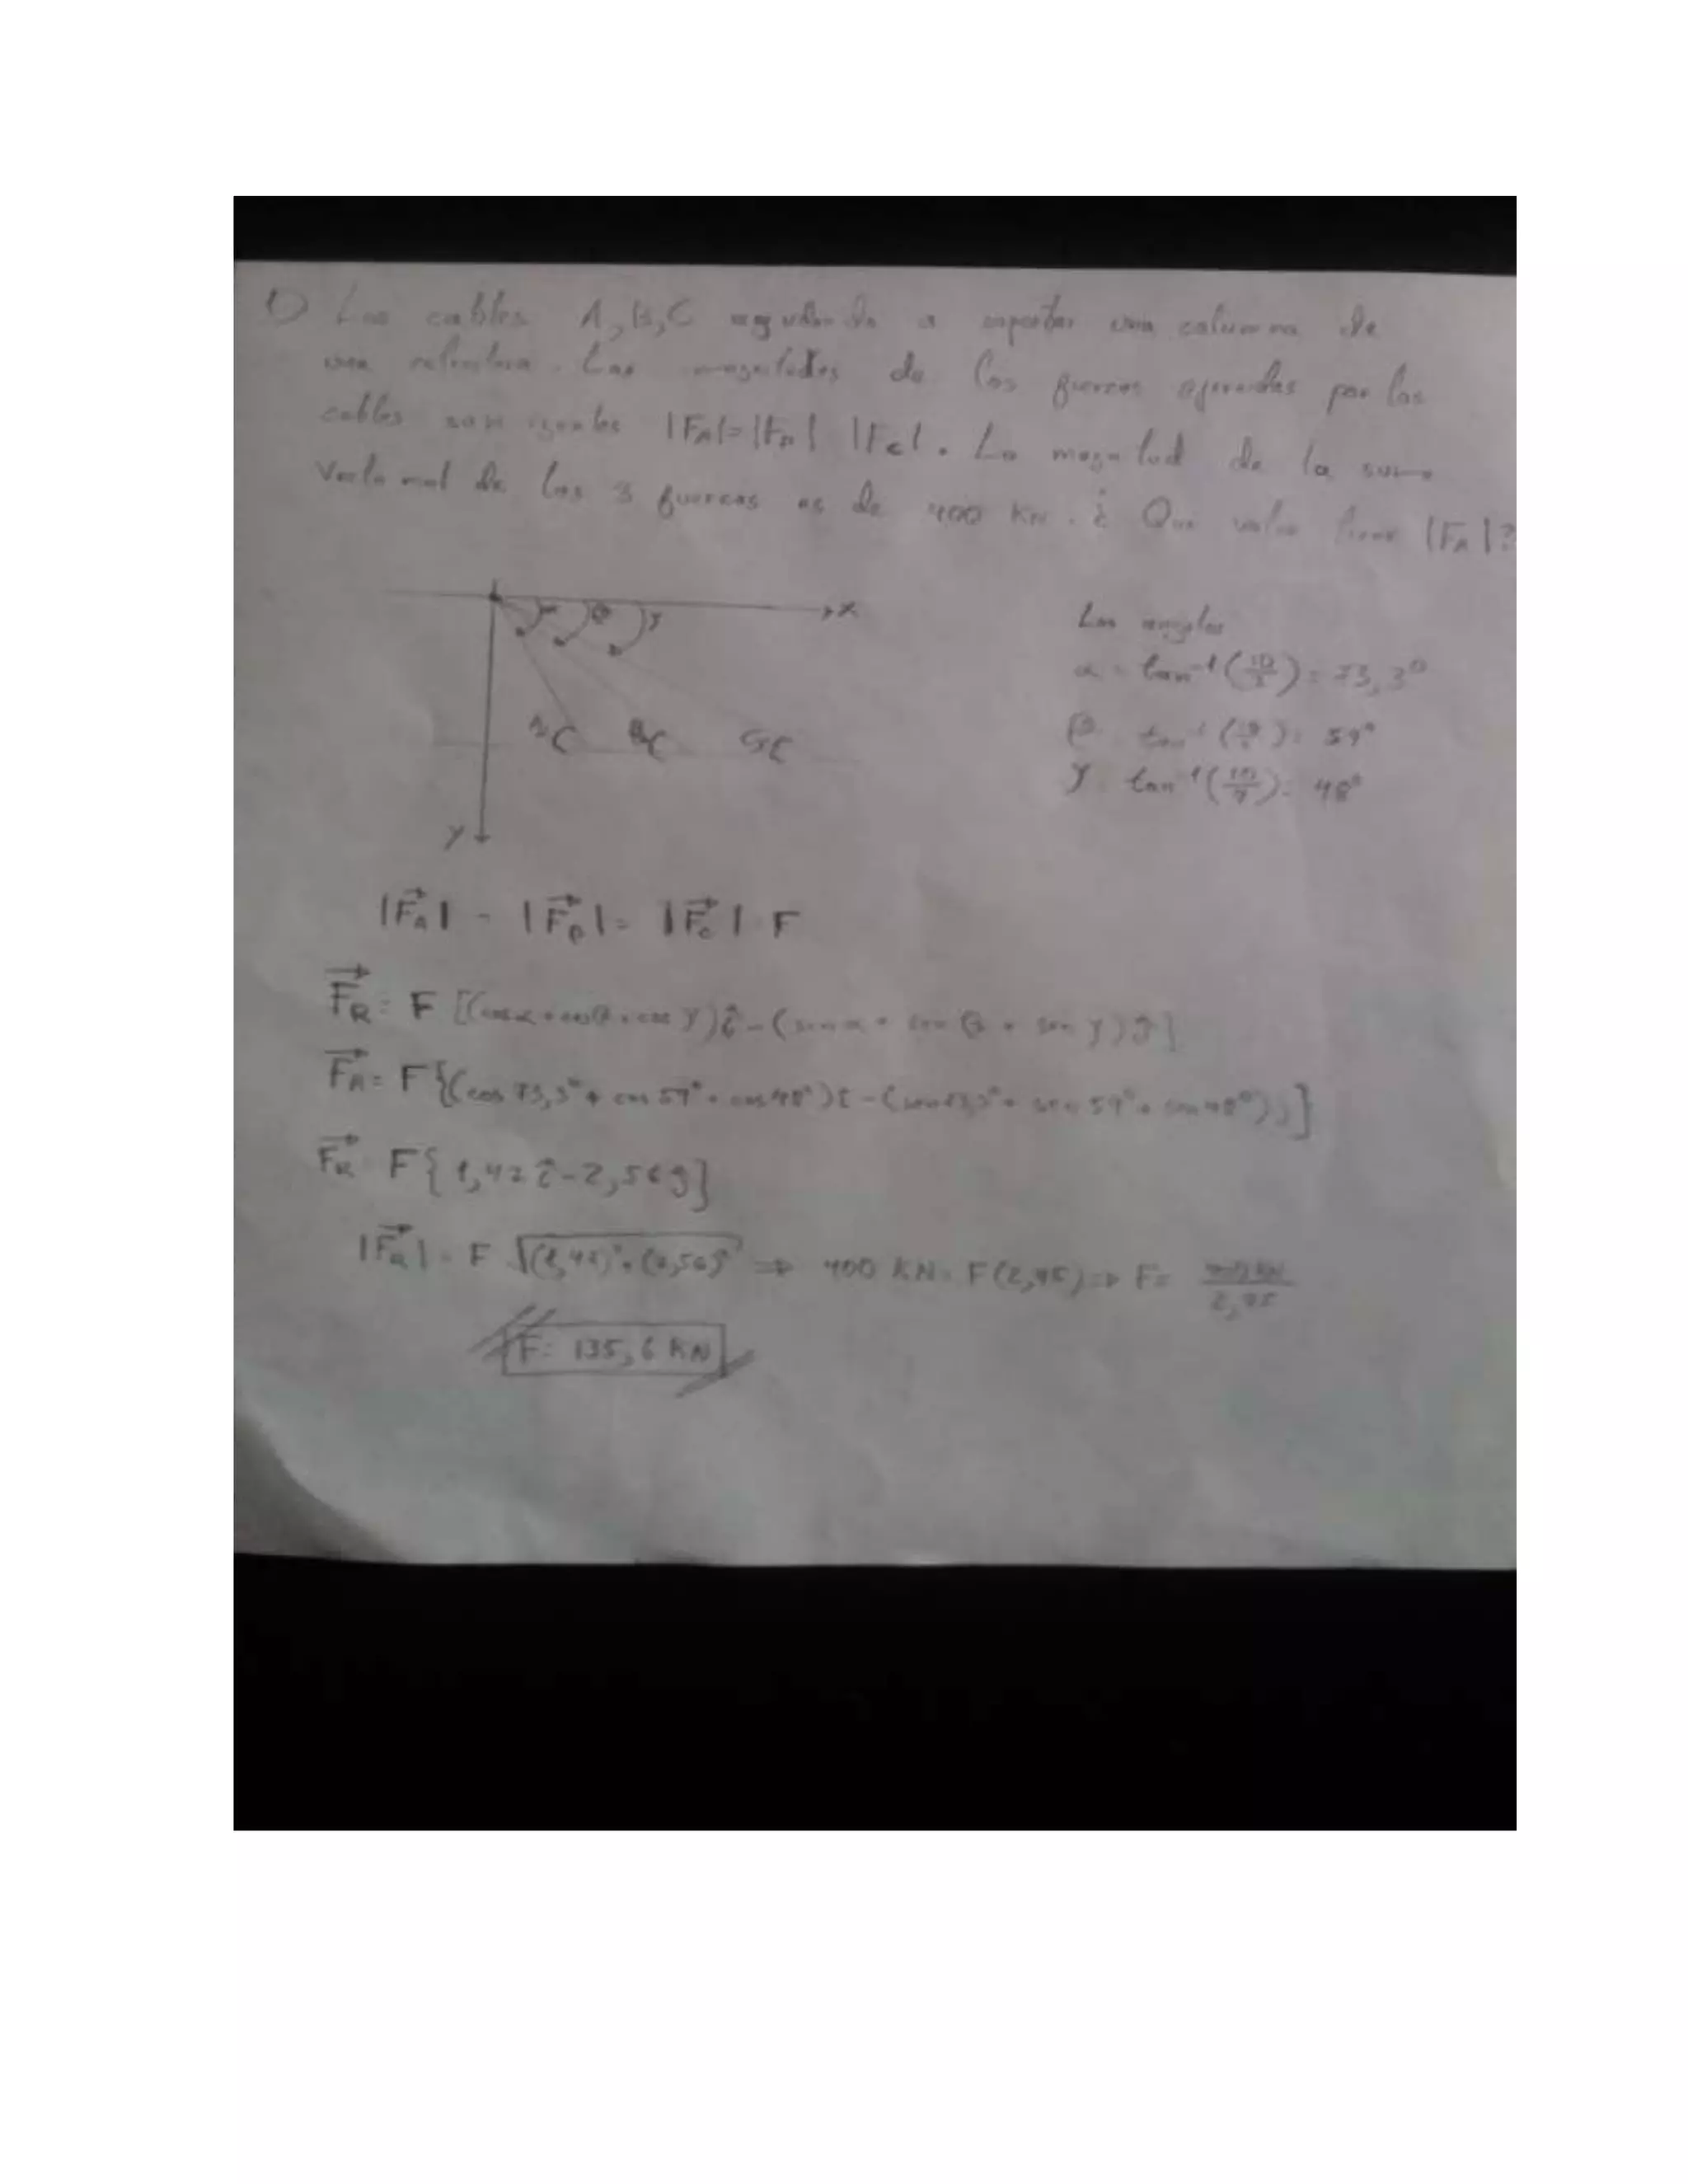 1) Los cables A, B, C ayudan a soportar una columna de
una estructura. Las magnitudes de las fuerzas ejercidas por los
cables son iguales |FA|=|FB| |Fc|. La magnitud de la suma
vectorial de las 3 fuerzas es de 400 KN. ¿ Que valor tiene |FA|?
x
Los angulos
α = tan⁻¹(10/3) = 73,3°
β tan⁻¹ : 59°
γ tan⁻¹(10/9) = 48°
A B C
y
|FA| = |FB| = |Fc| F
FR = F [(cos α + cos β + cos γ)î - (sen α + sen β + sen γ)ĵ]
FR = F{(cos 73,3° + cos 59° + cos 48°)î - (sen 73,3° + sen 59° + sen 48°)ĵ}
FR F{1,42 î - 2,56 ĵ}
|FR| = F √(1,42)² + (2,56)² ⇒ 400 KN = F(2,95) ⇒ F= 400 KN / 2,95
F= 135,6 KN